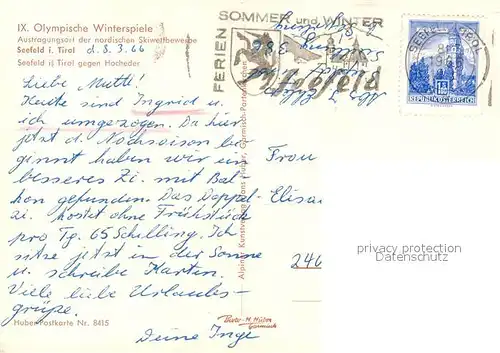 IX. Olympische Winterspiele
Austragungsort der nordischen Skiwettbewerbe
Seefeld i. Tirol d. 8. 3. 66
Seefeld i. Tirol gegen Hocheder
Liebe Mutti!
Heute sind Ingrid u.
ich umgezogen. Da hier
jetzt d. Nachsaison be
ginnt haben wir ein
besseres Zi. mit Bal
kon gefunden. Das Doppel-
zi. kostet ohne Frühstück
pro Tg. 65 Schilling. Ich
sitze jetzt in der Sonne
u. schreibe Karten.
Viele liebe Urlaubs-
grüße.
Deine Inge
Huber-Postkarte Nr. 8415
FERIEN
SOMMER und WINTER
Seefeld
SEEFELD TIROL
REPUBLIK ÖSTERREICH
Frau
Elisa
246
privacy protection
Datenschutz